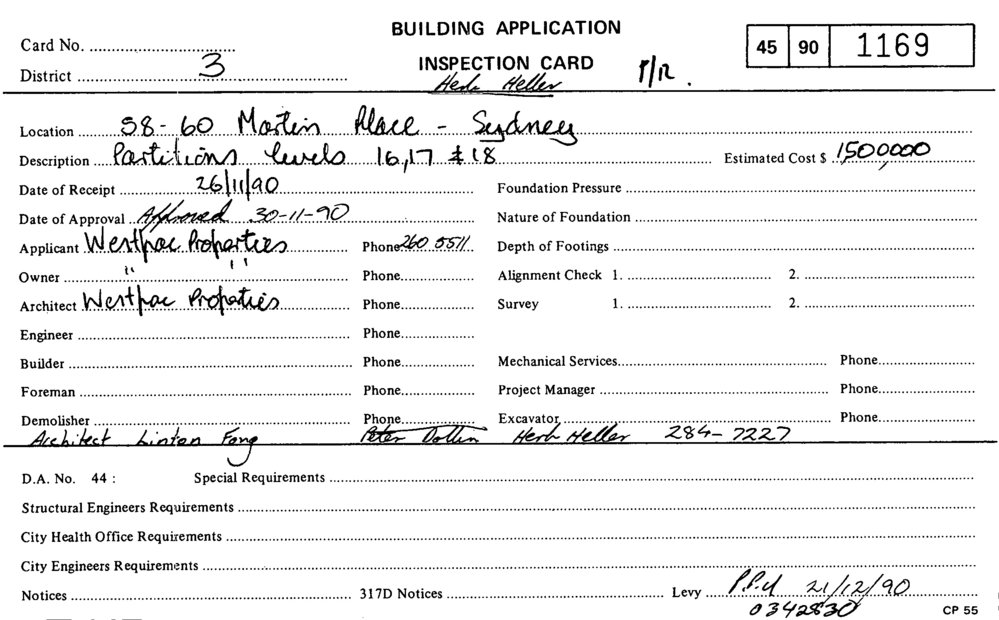 BUILDING APPLICATION
Card No. 45 90 1169
District 3 INSPECTION CARD
Herb Heller
Location 58-60 Martin Place - Sydney
Description Partitions levels 16,17 & 18 Estimated Cost $ 1,500,000
Date of Receipt 26/11/90 Foundation Pressure
Date of Approval Approved 30-11-90 Nature of Foundation
Applicant Westpac Properties Phone 260 5511 Depth of Footings
Owner " " Phone Alignment Check 1. 2.
Architect Westpac Properties Phone Survey 1. 2.
Engineer Phone
Builder Phone Mechanical Services Phone
Foreman Phone Project Manager Phone
Demolisher Phone Excavator Phone
Architect Linton Fong Peter Dollin Herb Heller 284-7227
D.A. No. 44 : Special Requirements
Structural Engineers Requirements
City Health Office Requirements
City Engineers Requirements
Notices 317D Notices Levy 21/12/90
0342830 CP 55